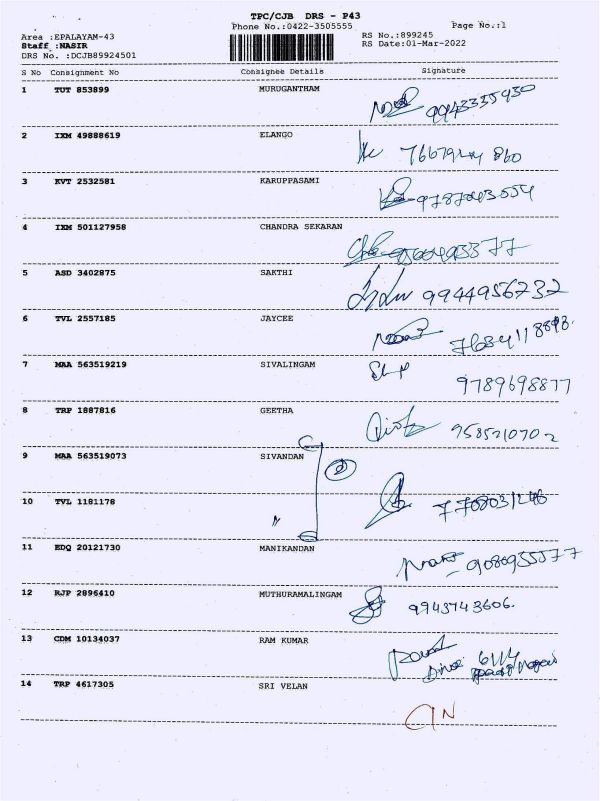 TPC/CJB DRS - P43
Phone No.:0422-3505555
Page No.:1
Area :EPALAYAM-43
RS No.:899245
Staff :NASIR
RS Date:01-Mar-2022
DRS No. :DCJB89924501
S No Consignment No Consignee Details Signature
1 TUT 853899 MURUGANTHAM
9943335930
2 IXM 49888619 ELANGO
3 KVT 2532581 KARUPPASAMI
4 IXM 501127958 CHANDRA SEKARAN
5 ASD 3402875 SAKTHI
9944956732
6 TVL 2557185 JAYCEE
7 MAA 563519219 SIVALINGAM
9789698877
8 TRP 1887816 GEETHA
9585210702
9 MAA 563519073 SIVANDAN
2
10 TVL 1181178 "
11 EDQ 20121730 MANIKANDAN
12 RJP 2896410 MUTHURAMALINGAM
9943743606.
13 CDM 10134037 RAM KUMAR
14 TRP 4617305 SRI VELAN